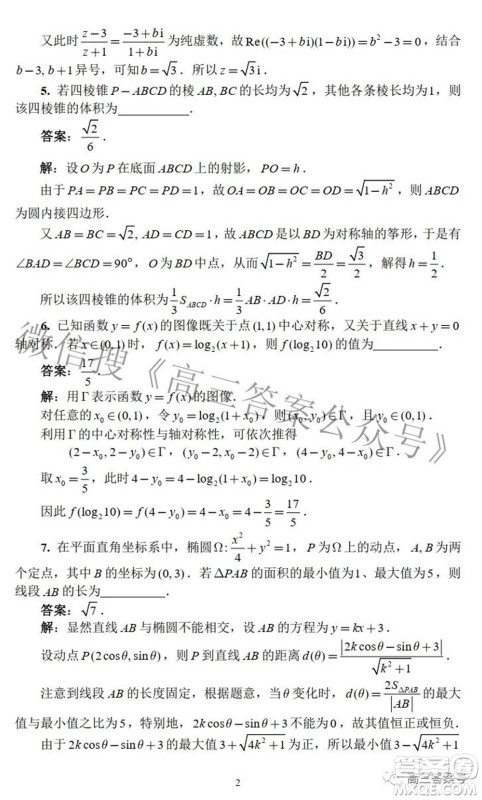 又此时 (z−3)/(z+1) = (−3+bi)/(1+bi) 为纯虚数，故 Re((−3+bi)(1−bi)) = b²−3 = 0，结合
b−3, b+1 异号，可知 b = √3．所以 z = √3 i．
5. 若四棱锥 P−ABCD 的棱 AB, BC 的长均为 √2，其他各条棱长均为 1，则
该四棱锥的体积为__________．
答案：√2/6．
解：设 O 为 P 在底面 ABCD 上的射影，PO = h．
由于 PA = PB = PC = PD = 1，故 OA = OB = OC = OD = √(1−h²)，则 ABCD
为圆内接四边形．
又 AB = BC = √2, AD = CD = 1，故 ABCD 是以 BD 为对称轴的筝形，于是有
∠BAD = ∠BCD = 90°，O 为 BD 中点，从而 √(1−h²) = BD/2 = √3/2，解得 h = 1/2．
所以该四棱锥的体积为 1/3 S_ABCD · h = 1/3 AB · AD · h = √2/6．
6. 已知函数 y = f(x) 的图像既关于点 (1,1) 中心对称，又关于直线 x + y = 0
轴对称．若 x∈(0,1) 时，f(x) = log₂(x+1)，则 f(log₂10) 的值为__________．
答案：17/5．
解：用 Γ 表示函数 y = f(x) 的图像．
对任意的 x₀∈(0,1)，令 y₀ = log₂(1+x₀)，则 (x₀, y₀)∈Γ，且 y₀∈(0,1)．
利用 Γ 的中心对称性与轴对称性，可依次推得
(2−x₀, 2−y₀)∈Γ，(y₀−2, x₀−2)∈Γ，(4−y₀, 4−x₀)∈Γ．
取 x₀ = 3/5，此时 4−y₀ = 4−log₂(1+x₀) = log₂10．
因此 f(log₂10) = f(4−y₀) = 4−x₀ = 4−3/5 = 17/5．
7. 在平面直角坐标系中，椭圆 Ω: x²/4 + y² = 1，P 为 Ω 上的动点，A, B 为两
个定点，其中 B 的坐标为 (0,3)．若 △PAB 的面积的最小值为 1、最大值为 5，则
线段 AB 的长为__________．
答案：√7．
解：显然直线 AB 与椭圆不能相交，设 AB 的方程为 y = kx+3．
设动点 P(2cosθ, sinθ)，则 P 到直线 AB 的距离 d(θ) = |2k cosθ − sinθ + 3|/√(k²+1)．
注意到线段 AB 的长度固定，根据题意，当 θ 变化时，d(θ) = 2S_△PAB/|AB| 的最
大值与最小值之比为 5，特别地，2k cosθ − sinθ + 3 不能为 0，故其值恒正或恒负．
由于 2k cosθ − sinθ + 3 的最大值 3+√(4k²+1) 为正，所以最小值 3−√(4k²+1)
2
微信搜《高三答案公众号》
高三答案号